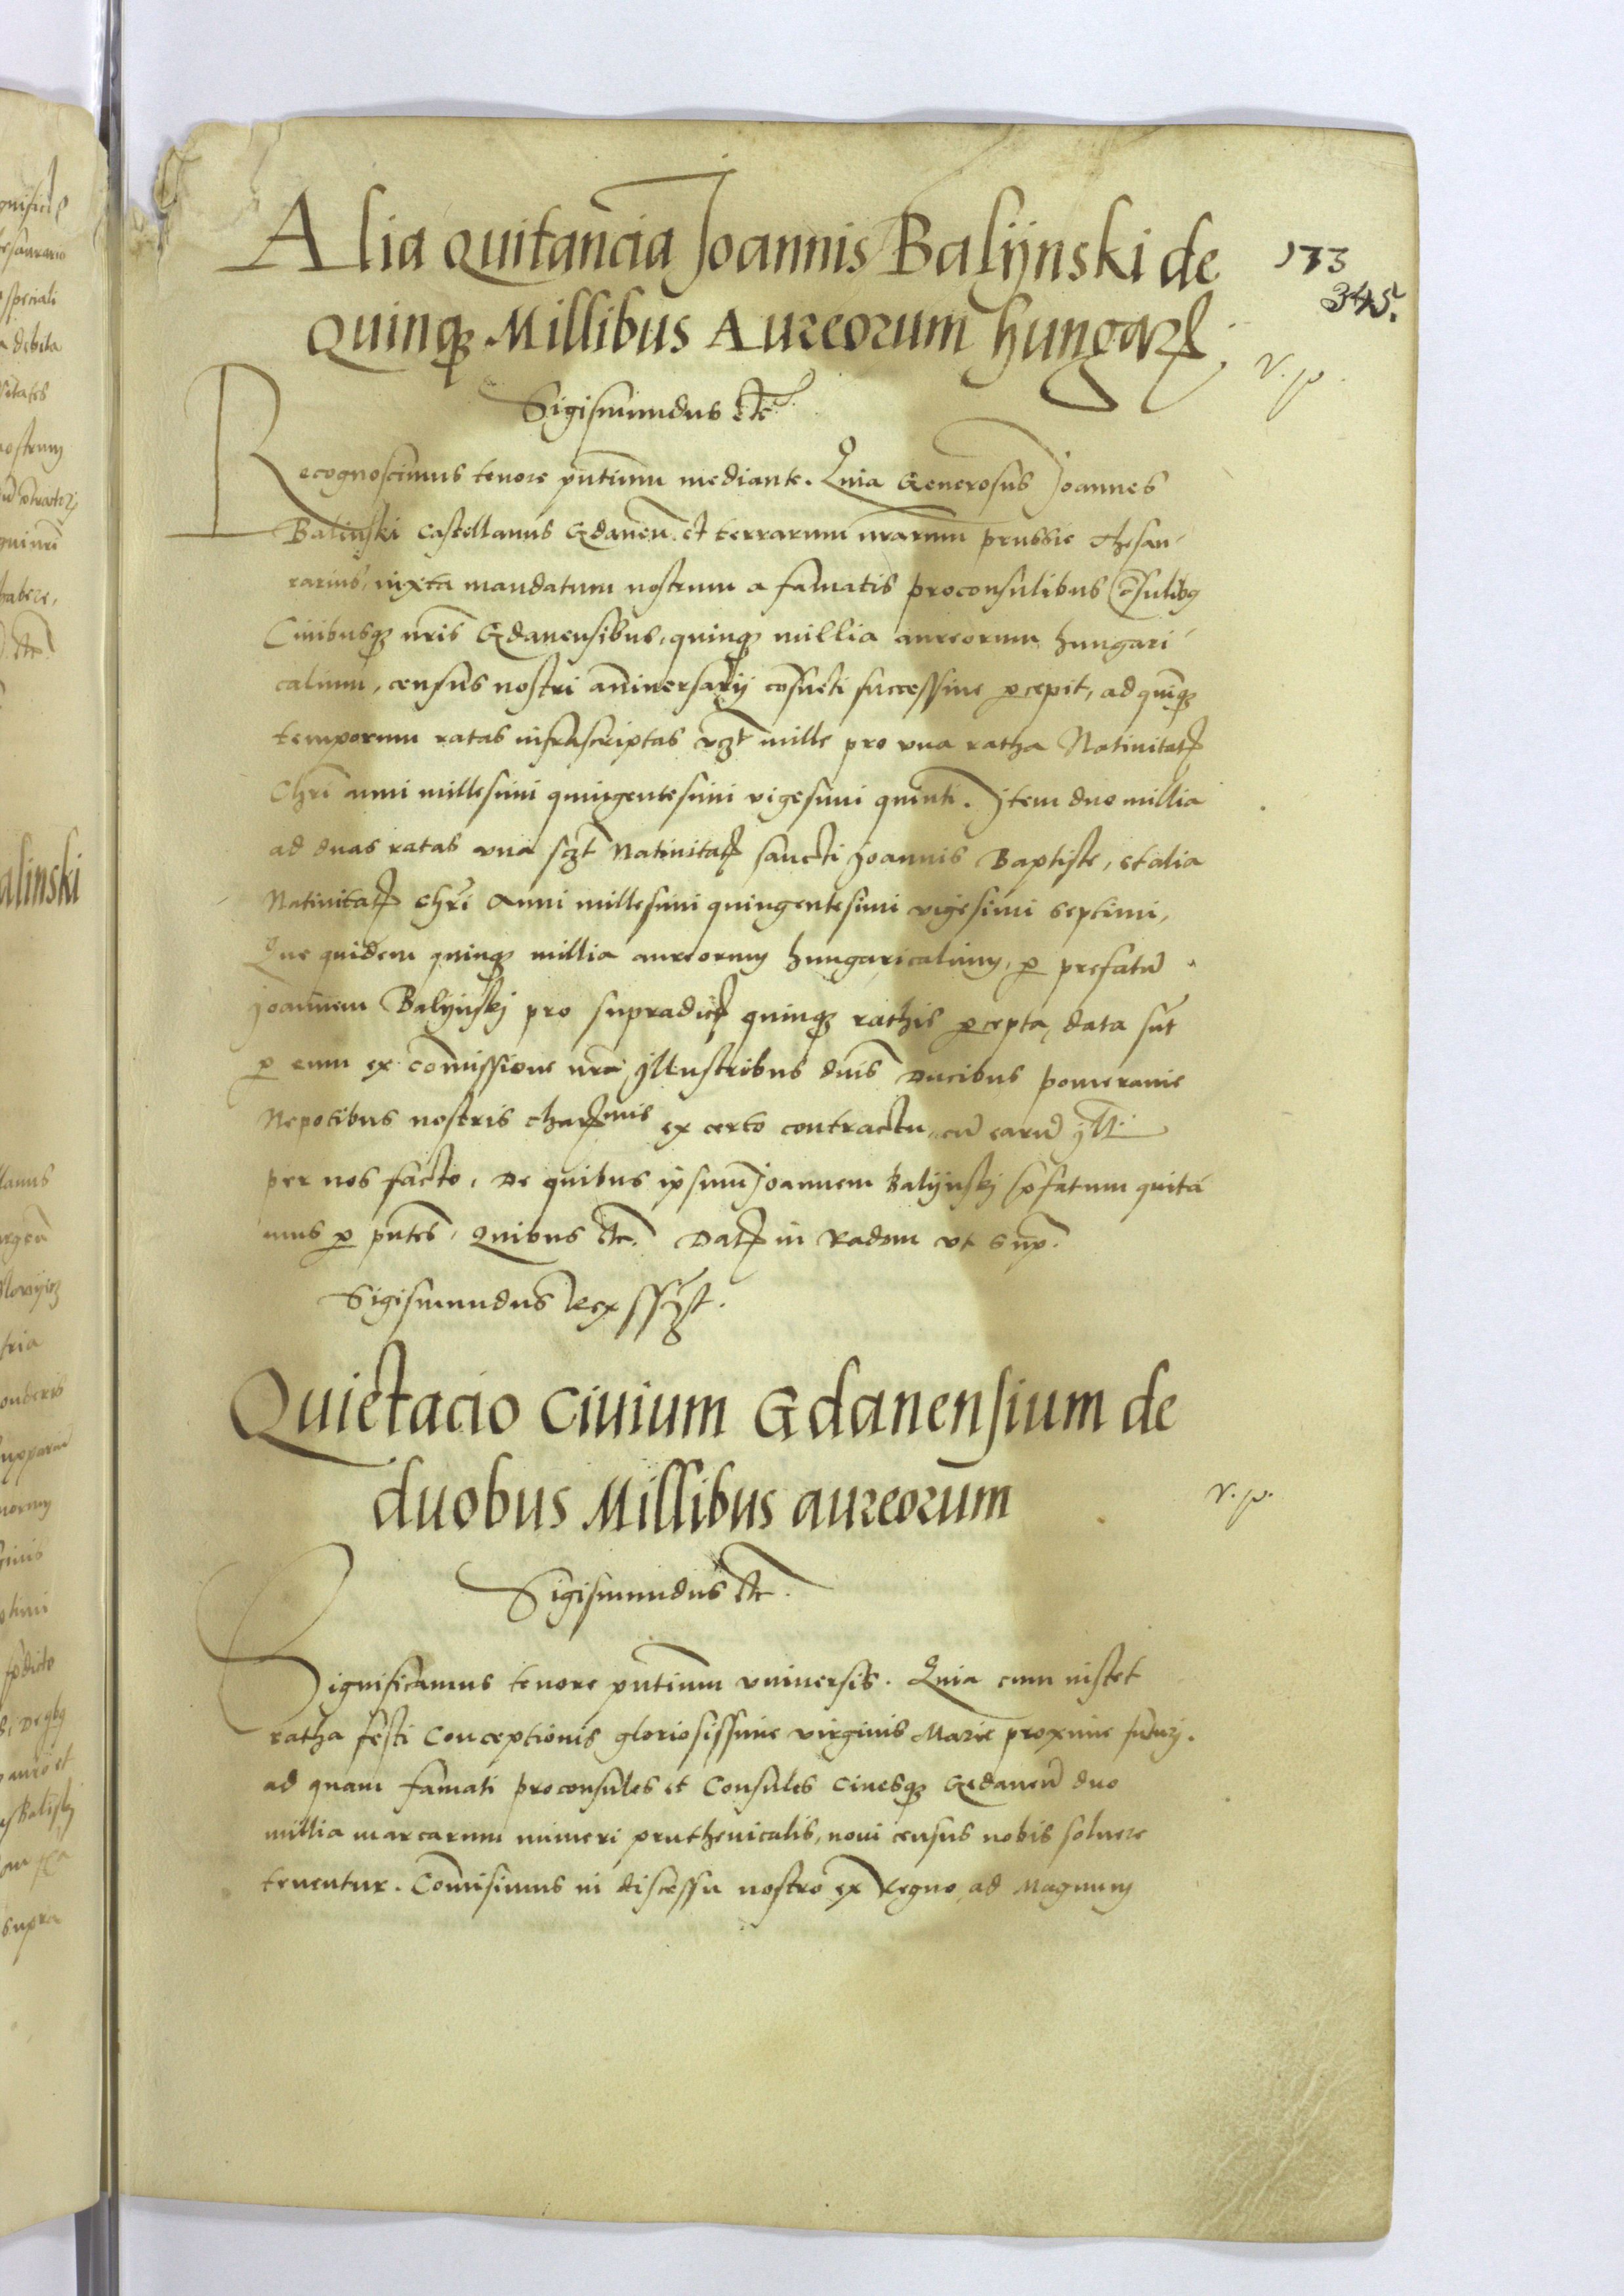 Alia quitancia Joannis Balijnski de
quinq₃ Millibus Aureorum hungarꝝ
173
345.
V. p.
Sigismundus etc.
Recognoscimus tenore pñtium mediante. Quia Generosus Joannes
Balinski Castellanus Gdaneñ. et terrarum nrarum prussie thesau-
rarius, iuxta mandatum nostrum a famatis proconsulibus Cõsulibꝯ
Ciuibusq₃ nris Gdanensibus, quinq₃ millia aureorum hungari-
calium, census nostri añiuersarij cõsueti successiue ꝑcepit, ad quiq₃
temporum ratas infrascriptas vꝫt mille pro vna ratha Natiuitatꝭ
Chri anni millesimi quingentesimi vigesimi quinti. Item duo millia
ad duas ratas vna sꝫt Natiuitatꝭ sancti Joannis Baptiste, et alia
Natiuitatꝭ Chri Anni millesimi quingentesimi vigesimi septimi,
Que quidem quinq₃ millia aureorum hungaricalium, ꝑ prefatũ
Joannem Balijnskj pro supradictꝭ quinq₃ rathis ꝑcepta, data sũt
ꝑ eum ex cõmissione nrã Illustribus dñis Ducibus pomeranie
Nepotibus nostris charꝭmis ex certo contractu cũ earũ Ill.
per nos facto. De quibus ipsum Joannem Balijnskj p̃fatum quita-
mus ꝑ pñtes. Quibus etc. Datꝭ in Radom vt sup̃.
Sigismundus Rex sspt.
Quietacio Ciuium Gdanensium de
duobus Millibus aureorum
V. p.
Sigismundus etc.
Significamus tenore pñtium vniuersis. Quia cum instet
ratha festi Conceptionis gloriosissime virginis Marie proxime futurj.
ad quam famati proconsules et Consules Ciuesq₃ Gedaneñ duo
millia marcarum numeri pruthenicalis, noui census nobis soluere
tenentur. Cõmisimus in discessu nostro ex Regno ad Magnum